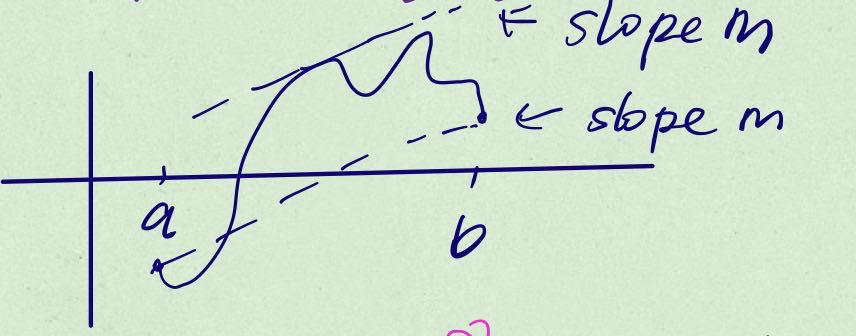 ← slope m
← slope m
a
b